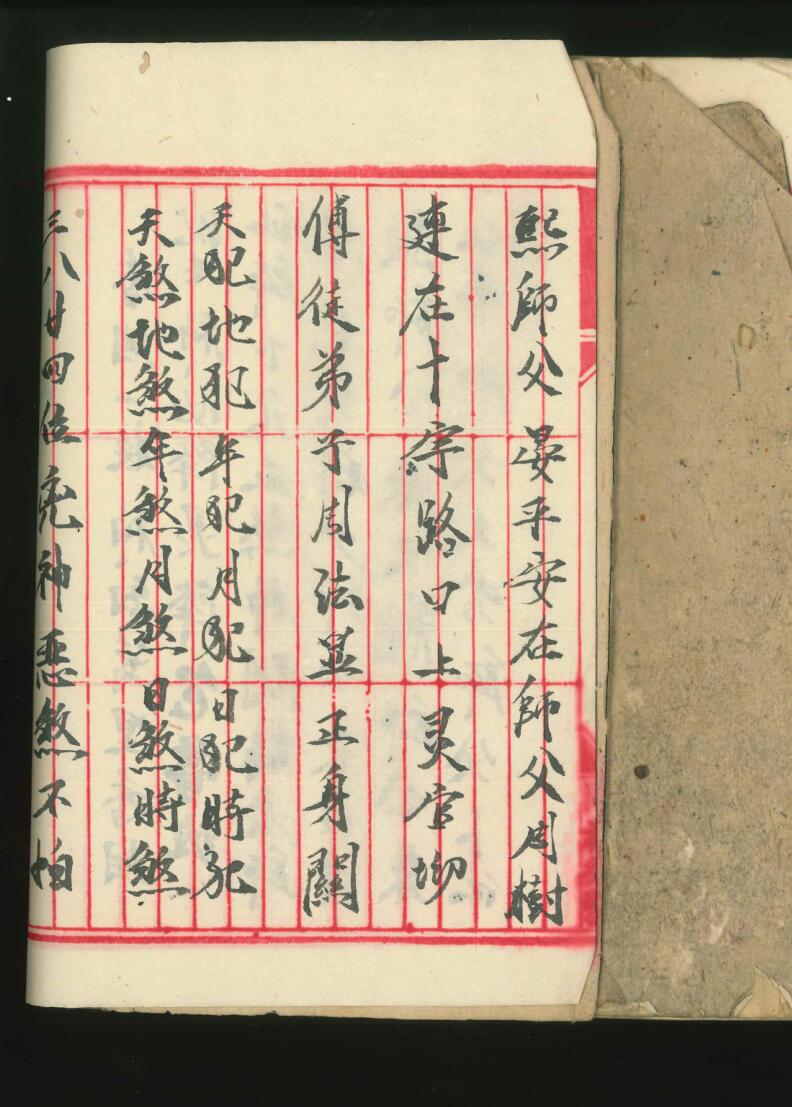 熙師父晏平安在師父周樹
連在十字路口上灵官坳
傅徒弟子周法显正身關
天犯地犯年犯月犯日犯時犯
天煞地煞年煞月煞日煞時煞
三八廿四位兇神惡煞不怕